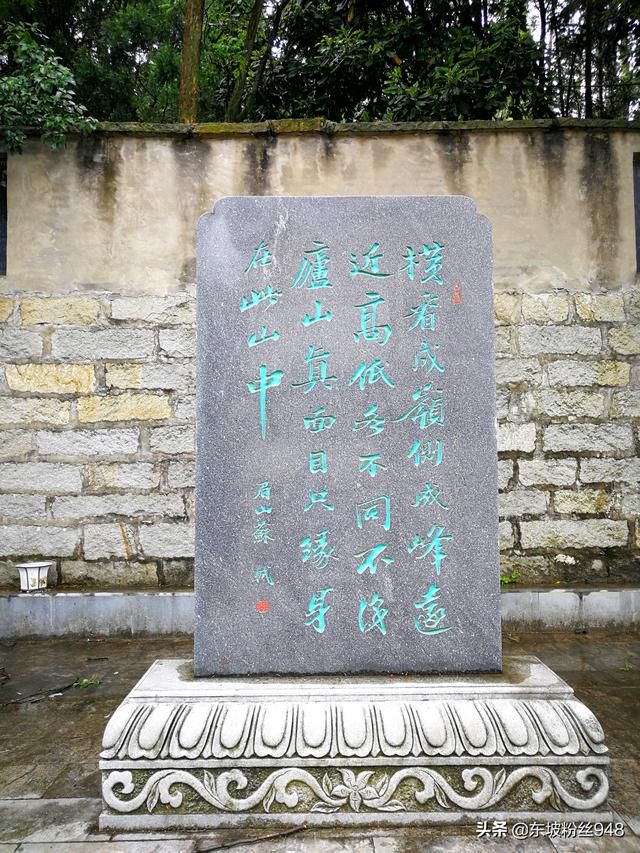 横看成嶺側成峰遠
近高低各不同不識
廬山眞面目只緣身
在此山中
眉山蘇軾
头条 @东坡粉丝948